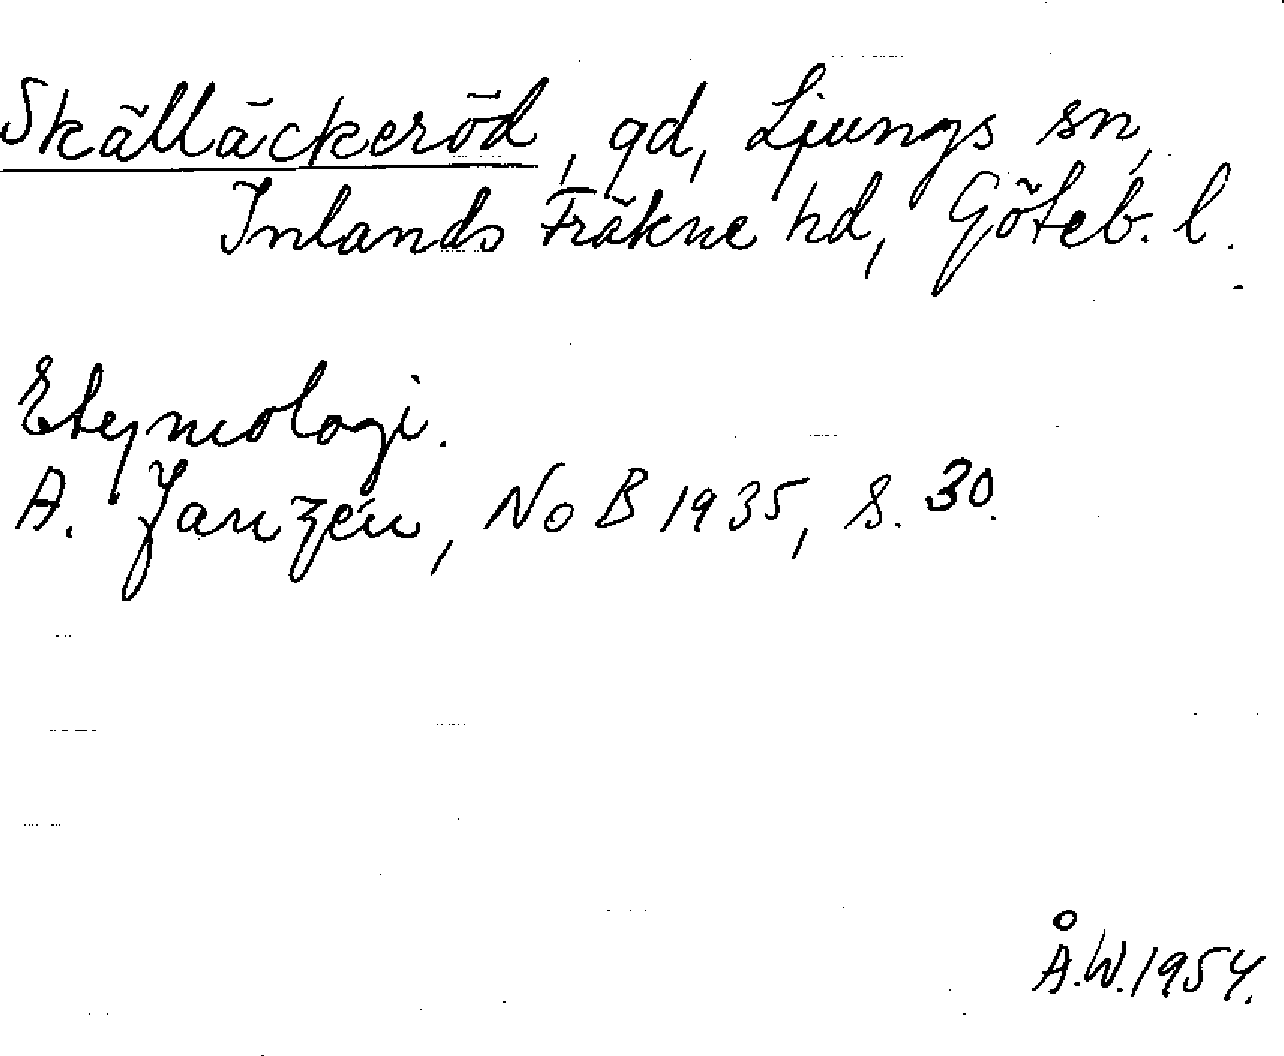 Skälläckeröd, gd, Ljungs sn,
Inlands Fräkne hd, Göteb. l.
Etymologi.
A. Janzén, NoB 1935, s. 30.
Å.W. 1954.